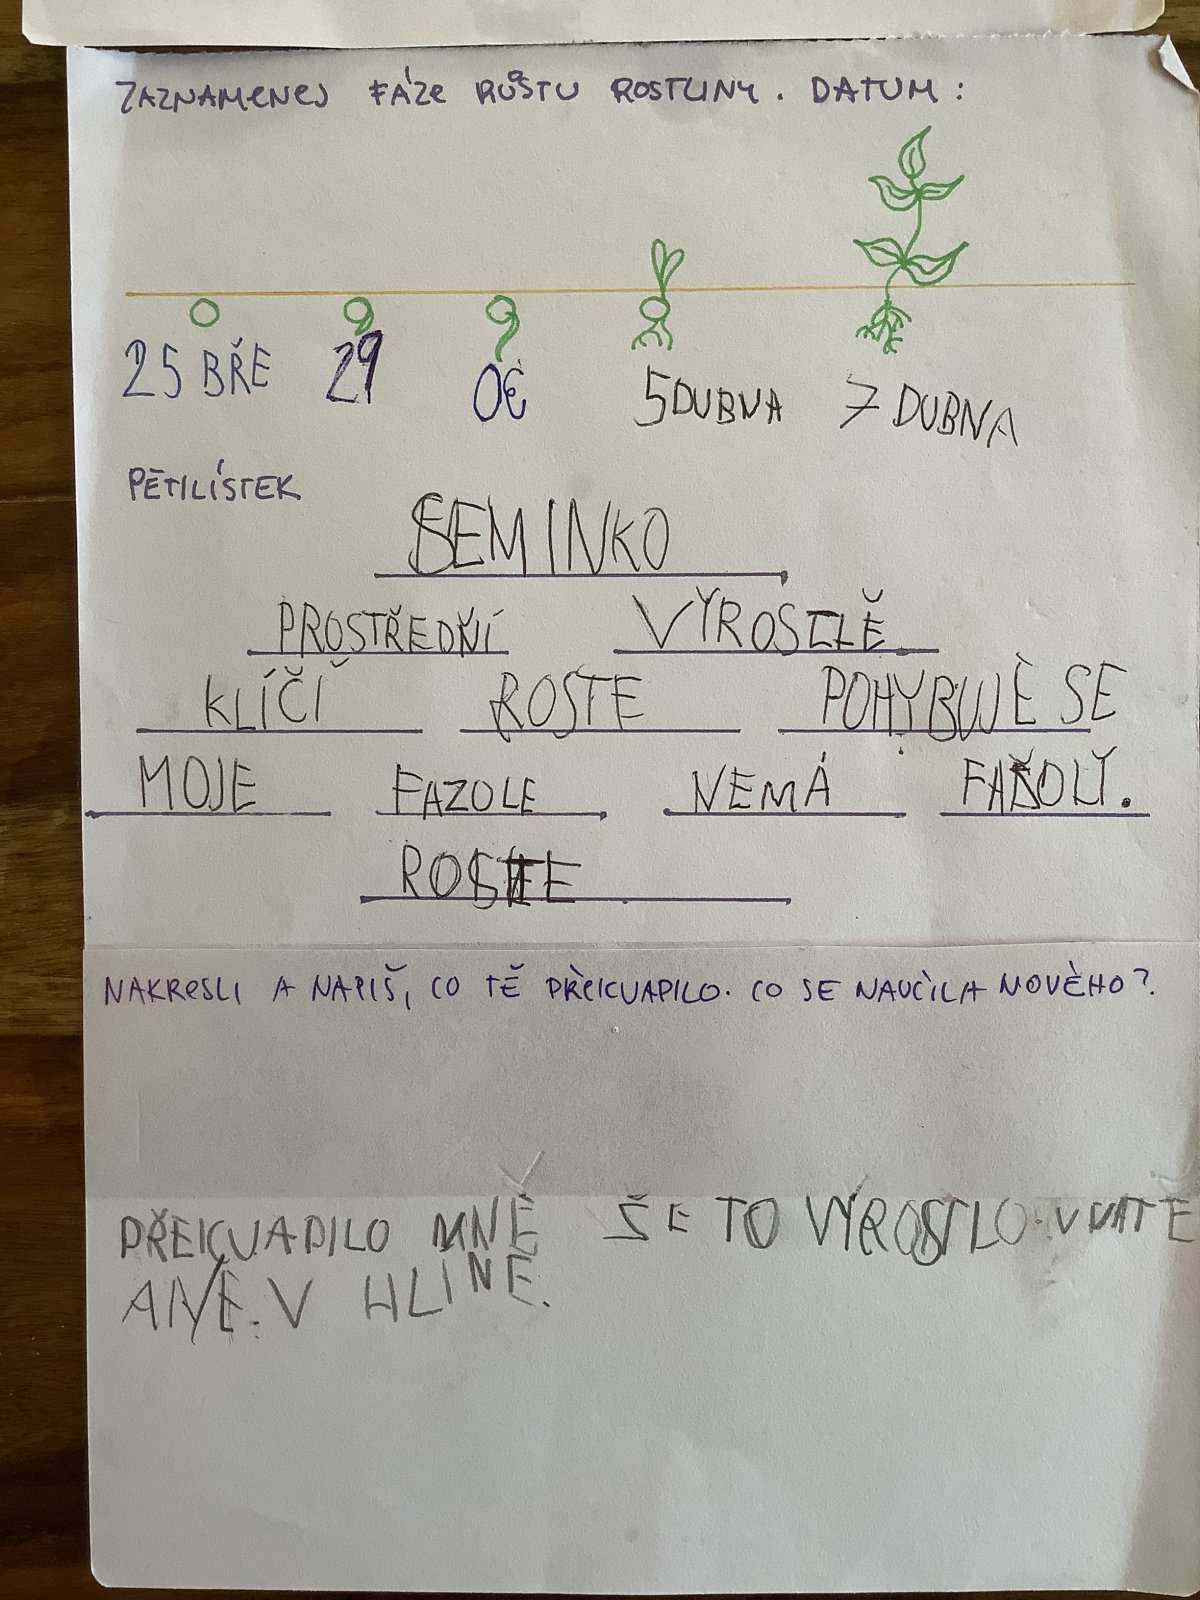 ZAZNAMENEJ FÁZE RŮSTU ROSTLINY. DATUM:
25 BŘE 29 5 DUBNA 7 DUBNA
PĚTILÍSTEK
SEMINKO
PROSTŘEDŇÍ VYROSTLĚ
KLÍČÍ ROSTE POHYBUJE SE
MOJE FAZOLE NEMÁ
ROSTE
NAKRESLI A NAPIŠ, CO TĚ PŘEKVAPILO. CO SE NAUČILA NOVÉHO?
PŘEKVAPILO MNĚ ŠE TO VÝROSTLO V VATĚ
ANE. V HLINE.